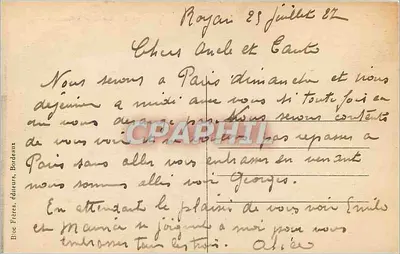 Royan 25 juillet
Chers Oncle et Tante
Nous serons a Paris dimanche et irons
dejeuner a midi avec vous si toute fois ca
ne vous derange pas. Nous serons contents
de vous voir pas repasser a
Paris sans aller vous embrasser en venant
nous sommes allés voir Georges.
En attendant le plaisir de vous voir Emile
et se joignent a moi pour vous
embrasser tous les trois.
CPAPHIL
Bloc Frères, éditeurs, Bordeaux